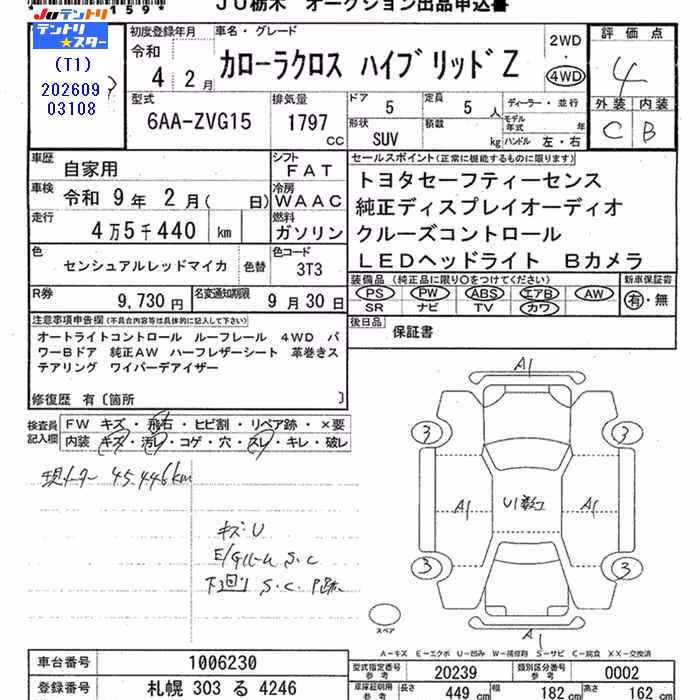 159*
JU栃木 オークション出品申込書
JUテントリ
テントリ★スター
(T1)
202609
03108
初度登録年月
令和
4 2月
車名・グレード
カローラクロス ハイブリッドZ
2WD
4WD
評価点
4
外装 内装
C B
型式
6AA-ZVG15
排気量
1797 CC
ドア 5
定員 5 人
形状 SUV
積載 kg
ディーラー・並行
モデル年式 年式
ハンドル 左・右
車歴 自家用
シフト FAT
車検 令和 9年 2月( 日)
冷房 WAAC
走行 4万5千440 km
燃料 ガソリン
色 センシュアルレッドマイカ 色替
色コード 3T3
R券 9,730円
名変通知期限 9月30日
セールスポイント(正常に機能するものに限ります)
トヨタセーフティーセンス
純正ディスプレイオーディオ
クルーズコントロール
LEDヘッドライト Bカメラ
装備品 (純正品に限り○をつけてください)
PS PW ABS エアB AW
SR ナビ TV カワ
新車保証書
有・無
後日品 保証書
注意事項申告欄(不具合内容等は具体的に記入して下さい)
オートライトコントロール ルーフレール 4WD パ
ワーBドア 純正AW ハーフレザーシート 革巻きス
テアリング ワイパーデアイザー
修復歴 有〔箇所 〕
検査員記入欄
FW キズ・飛石・ヒビ割・リペア跡・×要
内装 キズ・汚レ・コゲ・穴・スレ・キレ・破レ
現メーター 45,446km
キズU
S.C
下回り S.C
A1
3 3
A1 U1 A1
3 3
スペア
A1
A-キズ E-エクボ U-凹み W-補修跡 S-サビ C-腐食 XX-交換済
車台番号 1006230
登録番号 札幌 303 る 4246
型式指定番号 参考 20239
類別区分番号 参考 0002
車庫証明用 参考
長さ 449 cm
幅 182 cm
高さ 162 cm